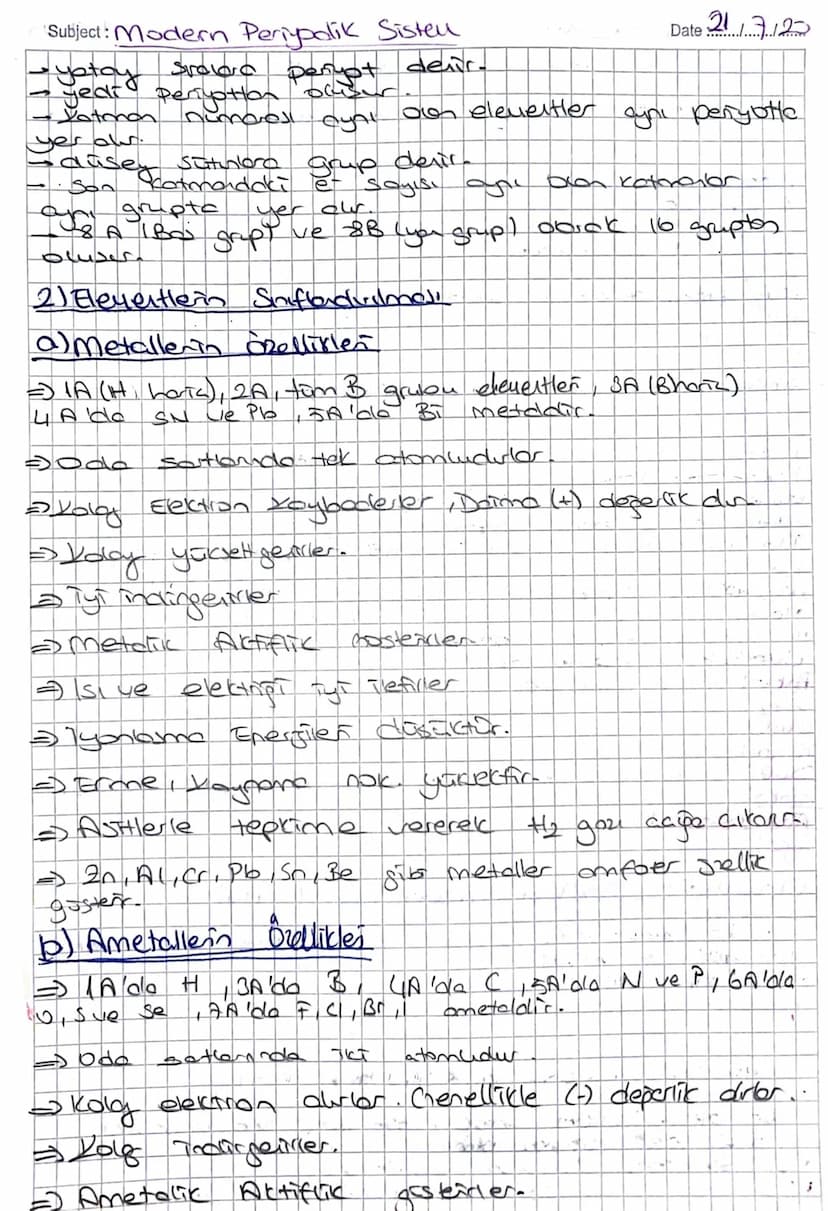 Subject: Modern Periyodik Sistem Date 21/7/20
→ yatay sıralara periyot denir.
→ yedi periyottan oluşur.
→ Katman numarası aynı olan elementler aynı periyotta
yer alır.
→ düşey sütunlara grup denir.
→ Son katmandaki e- sayısı aynı olan katmanlar
aynı grupta yer alır.
→ 8A (Baş grup) ve 8B (yan grup) olarak 16 gruptan
oluşur.
2) Elementlerin Sınıflandırılması
a) Metallerin Özellikleri
⇒ 1A (H, hariç), 2A, tüm B grubu elementleri, 3A (B hariç)
4A'da SN ve Pb, 5A'da Bi metaldir.
⇒ Oda şartlarında tek atomludurlar.
⇒ Kolay Elektron kaybederler, Daima (+) değerlik alır.
⇒ Kolay yükseltgenirler.
⇒ İyi indirgenirler
⇒ Metalik Aktiflik gösterirler.
⇒ Isı ve elektriği iyi iletirler
⇒ İyonlaşma Enerjileri düşüktür.
⇒ Erime, kaynama nok. yüksektir.
⇒ Asitlerle tepkime vererek H2 gazı açığa çıkarır.
⇒ Zn, Al, Cr, Pb, Sn, Be gibi metaller amfoter özellik
gösterir.
b) Ametallerin Özellikleri
⇒ 1A'da H, 3A'da B, 4A'da C, 5A'da N ve P, 6A'da
O, S ve Se, 7A'da F, Cl, Br, I ametaldir.
⇒ Oda şartlarında iki atomludur.
⇒ Kolay elektron alırlar. Genellikle (-) değerlik alırlar.
⇒ Kolay indirgenirler.
⇒ Ametalik Aktiflik gösterirler.